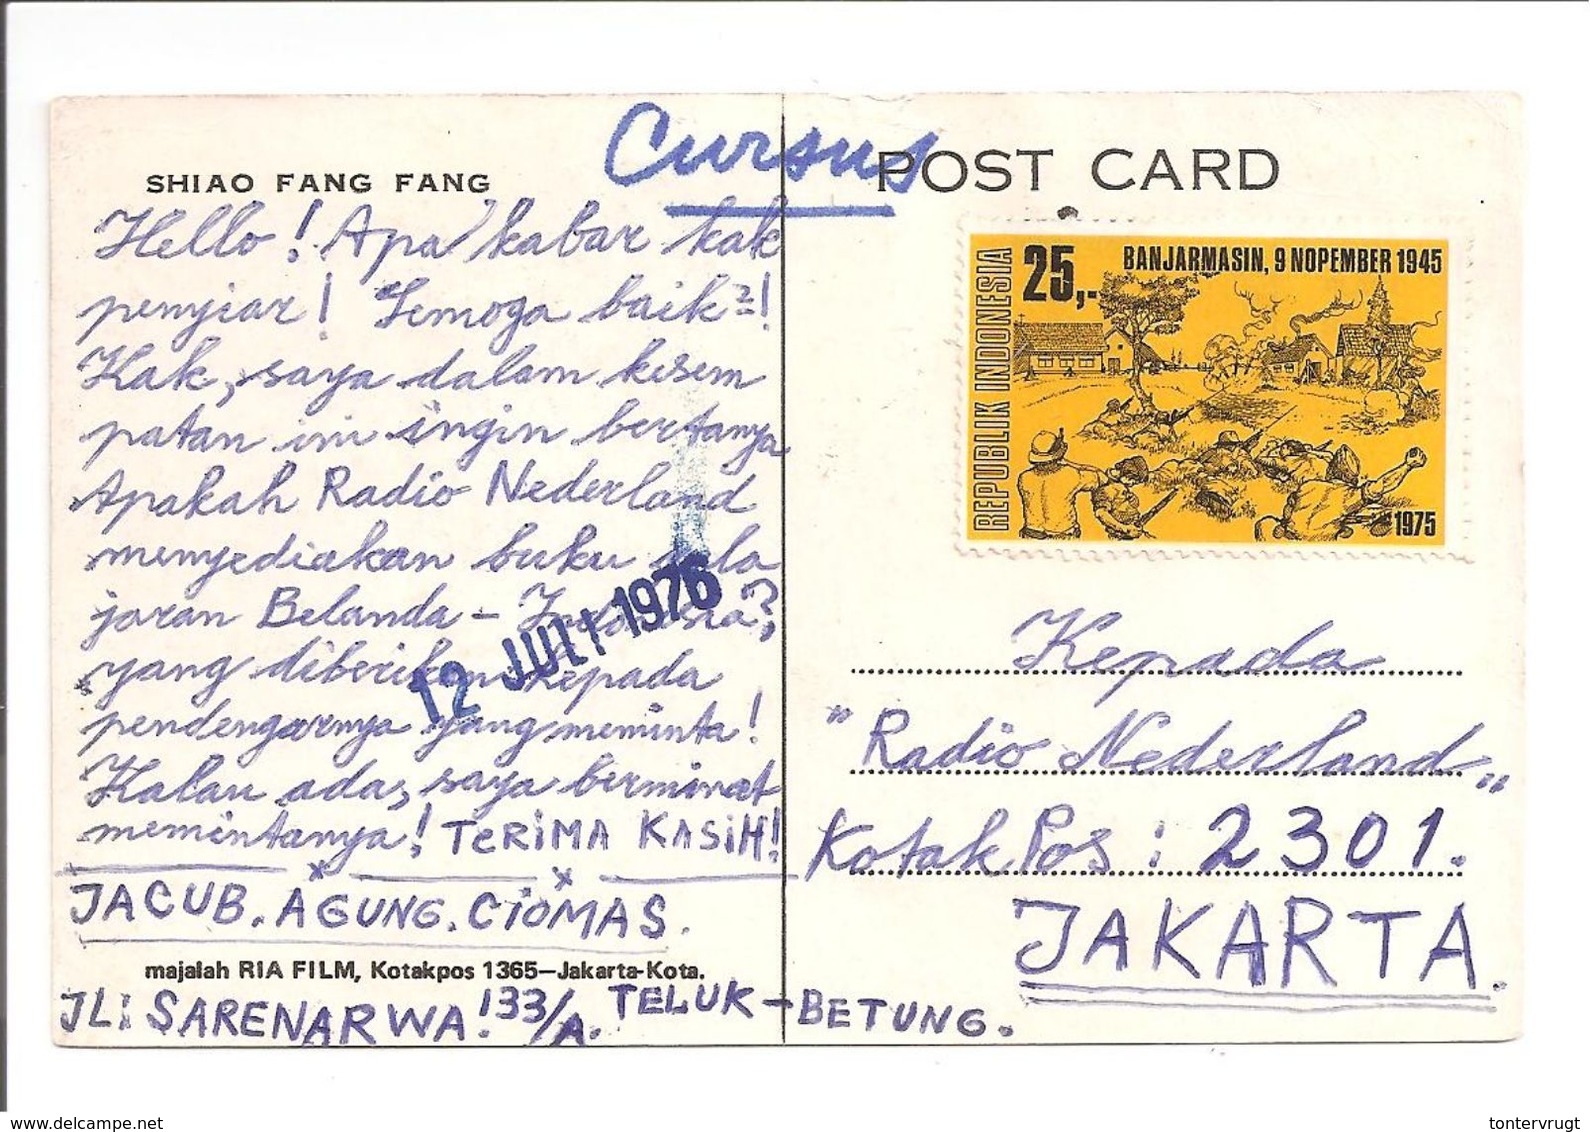 Cursus
SHIAO FANG FANG
Hello! Apa kabar kak
penyiar! Semoga baik²!
Kak, saya dalam kesem
patan ini ingin bertanya
Apakah Radio Nederland
menyediakan buku pela
jaran Belanda - Indonesia?,
yang diberikan kepada
pendengarnya yang meminta!
Kalau ada, saya berminat
memintanya! TERIMA KASIH!
JACUB. AGUNG. CIOMAS.
majalah RIA FILM, Kotakpos 1365—Jakarta-Kota.
JL: SARENARWA! 33/A. TELUK-BETUNG.
12 JULI 1976
POST CARD
REPUBLIK INDONESIA
25,-
BANJARMASIN, 9 NOPEMBER 1945
1975
Kepada
"Radio Nederland"
Kotak Pos: 2301.
JAKARTA.
delcampe.net
tontervrugt